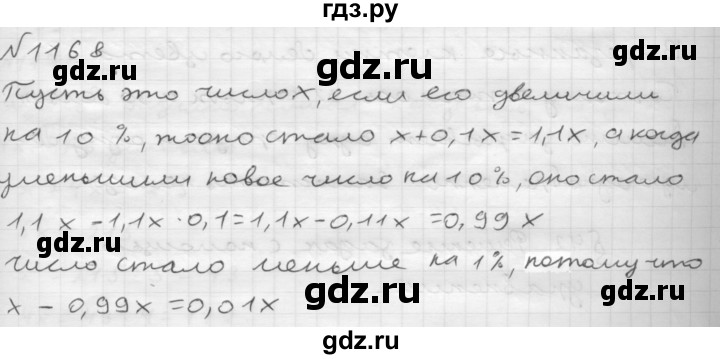 гдз.ру
№1168
gdz.ru gdz.ru
Пусть это число x, если его увеличили
на 10 %, то оно стало x+0,1x=1,1x, а когда
gdz.ru gdz.ru
уменьшили новое число на 10%, оно стало
1,1x -1,1x · 0,1=1,1x-0,11x =0,99x
gdz.ru gdz.ru
число стало меньше на 1%, потому что
x - 0,99x =0,01x
gdz.ru gdz.ru
gdz.ru